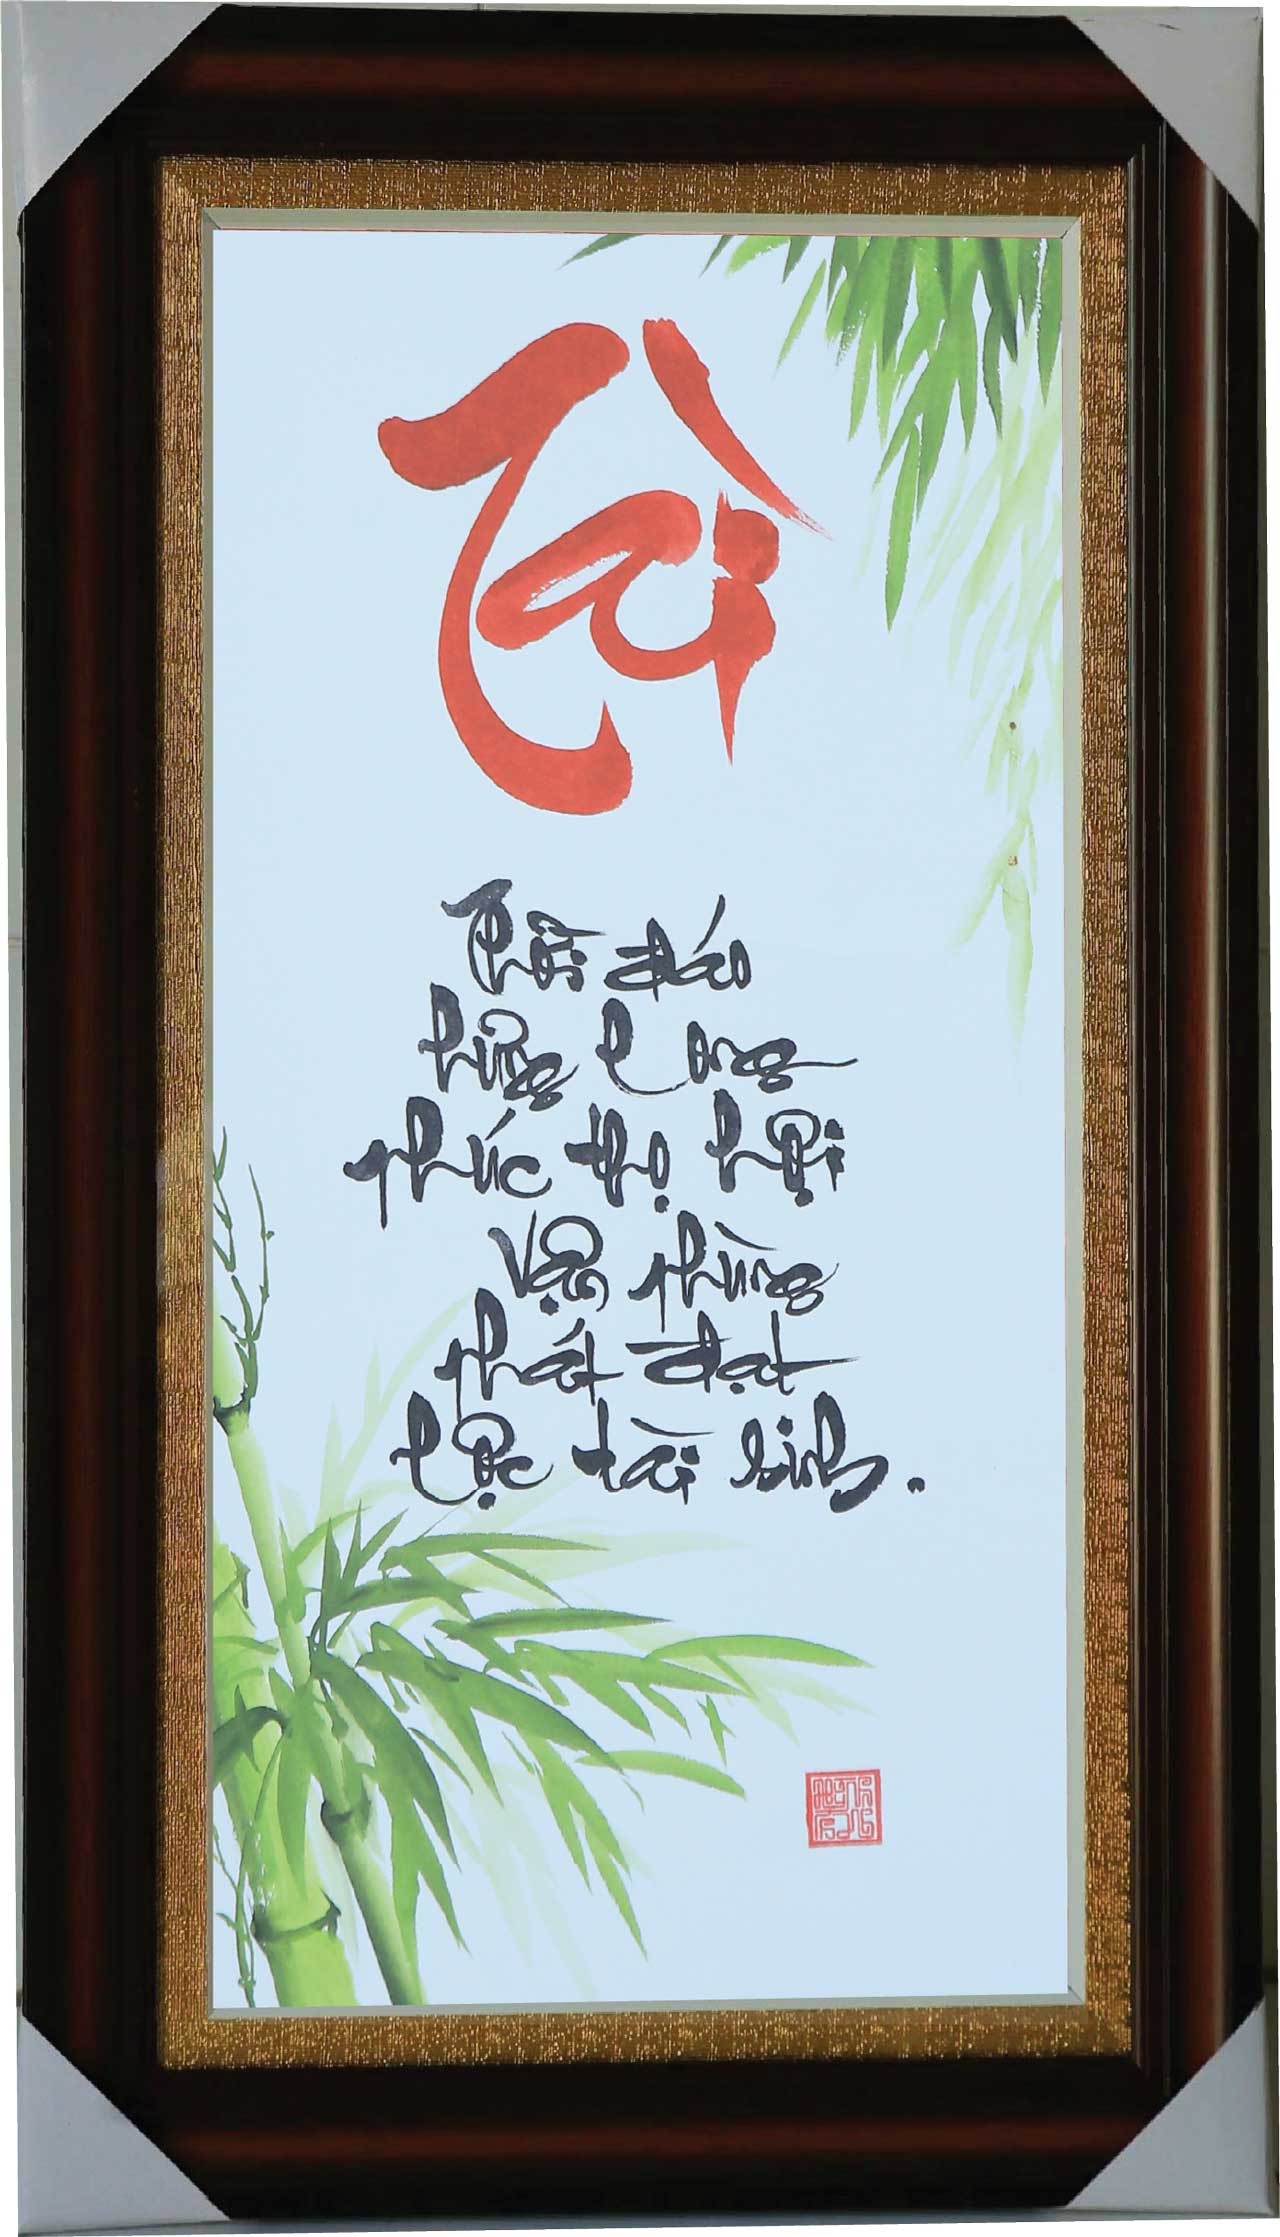 Tài
Thời đáo
hưng long
Phúc thọ hội
Vận phùng
phát đạt
lộc tài sinh.